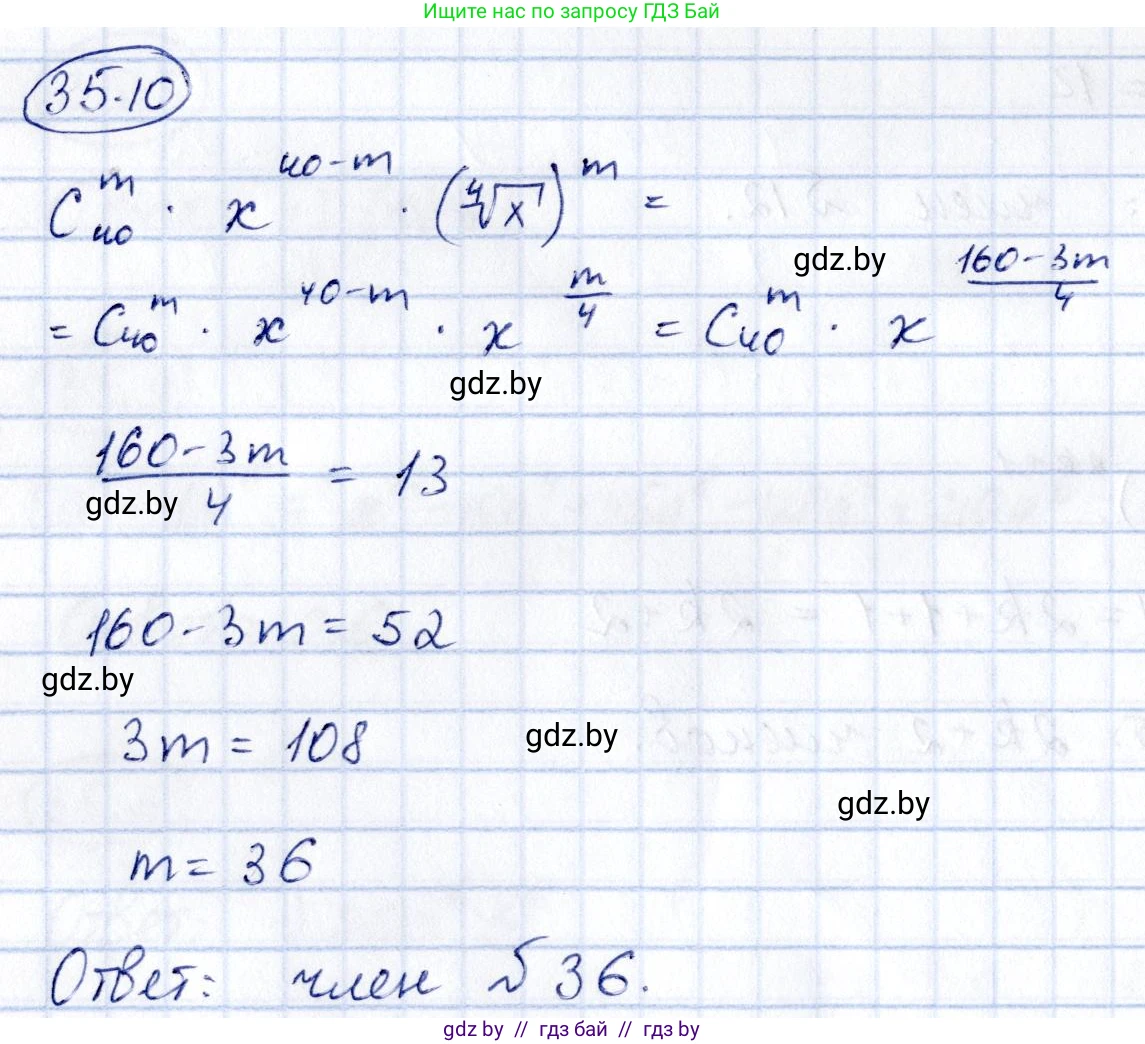 Ищите нас по запросу ГДЗ Бай
35.10
C₄₀ᵐ · x^(40-m) · (∜x)^m =
= C₄₀ᵐ · x^(40-m) · x^(m/4) = C₄₀ᵐ · x^((160-3m)/4)
gdz.by
gdz.by
(160-3m)/4 = 13
gdz.by
160-3m = 52
gdz.by
3m = 108
gdz.by
gdz.by
m = 36
Ответ: член №36.
gdz by // гдз бай // гдз by